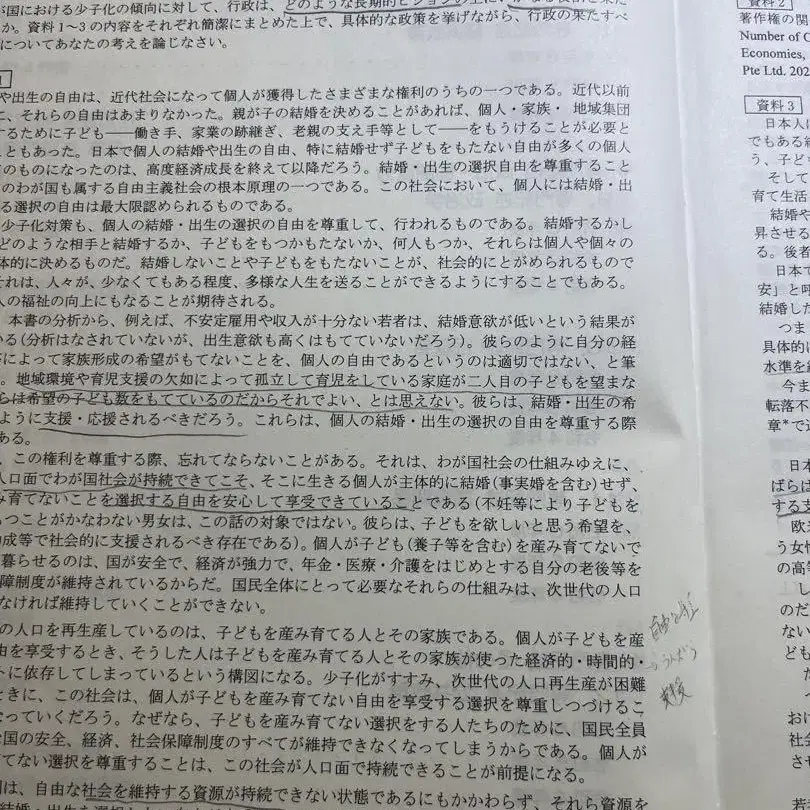 が国における少子化の傾向に対して、行政は、どのような長期的ビジョンの
か。資料１～３の内容をそれぞれ簡潔にまとめた上で、具体的な政策を挙げながら、行政の果たすべ
についてあなたの考えを論じなさい。
や出生の自由は、近代社会になって個人が獲得したさまざまな権利のうちの一つである。近代以前
に、それらの自由はあまりなかった。親が子の結婚を決めることがあれば、個人・家族・ 地域集団
するために子ども――働き手、家業の跡継ぎ、老親の支え手等として――をもうけることが必要と
こともあった。日本で個人の結婚や出生の自由、特に結婚せず子どもをもたない自由が多くの個人
てのものになったのは、高度経済成長を終えて以降だろう。結婚・出生の選択自由を尊重すること
のわが国も属する自由主義社会の根本原理の一つである。この社会において、個人には結婚・出
る選択の自由は最大限認められるものである。
少子化対策も、個人の結婚・出生の選択の自由を尊重して、行われるものである。結婚するかし
どのような相手と結婚するか、子どもをもつかもたないか、何人もつか、それらは個人や個々の
体的に決めるものだ。結婚しないことや子どもをもたないことが、社会的にとがめられるもので
それは、人々が、少なくてもある程度、多様な人生を送ることができるようにすることでもある。
人の福祉の向上にもなることが期待される。
本書の分析から、例えば、不安定雇用や収入が十分ない若者は、結婚意欲が低いという結果が
いる(分析はなされていないが、出生意欲も高くはもてていないだろう)。彼らのように自分の経
によって家族形成の希望がもてないことを、個人の自由であるというのは適切ではない、と筆
。地域環境や育児支援の欠如によって孤立して育児をしている家庭が二人目の子どもを望まな
らは希望の子ども数をもてているのだからそれでよい、とは思えない。彼らは、結婚・出生の希
ように支援・応援されるべきだろう。これらは、個人の結婚・出生の選択の自由を尊重する際
ある。
、この権利を尊重する際、忘れてならないことがある。それは、わが国社会の仕組みゆえに、
人口面でわが国社会が持続できてこそ、そこに生きる個人が主体的に結婚(事実婚を含む)せず、
み育てないことを選択する自由を安心して享受できていることである(不妊等により子どもを
もつことがかなわない男女は、この話の対象ではない。彼らは、子どもを欲しいと思う希望を、
成等で社会的に支援されるべき存在である)。個人が子ども(養子等を含む)を産み育てないで
暮らせるのは、国が安全で、経済が強力で、年金・医療・介護をはじめとする自分の老後等を
障制度が維持されているからだ。国民全体にとって必要なそれらの仕組みは、次世代の人口
なければ維持していくことができない。
の人口を再生産しているのは、子どもを産み育てる人とその家族である。個人が子どもを産
由を享受するとき、そうした人は子どもを産み育てる人とその家族が使った経済的・時間的・
トに依存してしまっているという構図になる。少子化がすすみ、次世代の人口再生産が困難
ときに、この社会は、個人が子どもを産み育てない自由を享受する選択を尊重しつづけるこ
なっていくだろう。なぜなら、子どもを産み育てない選択をする人たちのために、国民全員
な国の安全、経済、社会保障制度のすべてが維持できなくなってしまうからである。個人が
てない選択を尊重することは、この社会が人口面で持続できることが前提になる。
は、自由な社会を維持する資源が持続できない状態であるにもかかわらず、それら資源を
資料２
著作権の関
Number of C
Economies,
Pte Ltd. 202
資料３
日本人に
でもある結
う、子ども
そして
育て生活
結婚や
昇させる
る。後者
日本で
安」と呼
結婚した
つま
具体的に
水準を
今ま
転落不
章*で述
日本
ばらは
する支
欧
う女性
の高等
し
のだ
ない
ども
おけ
社会
させ
若